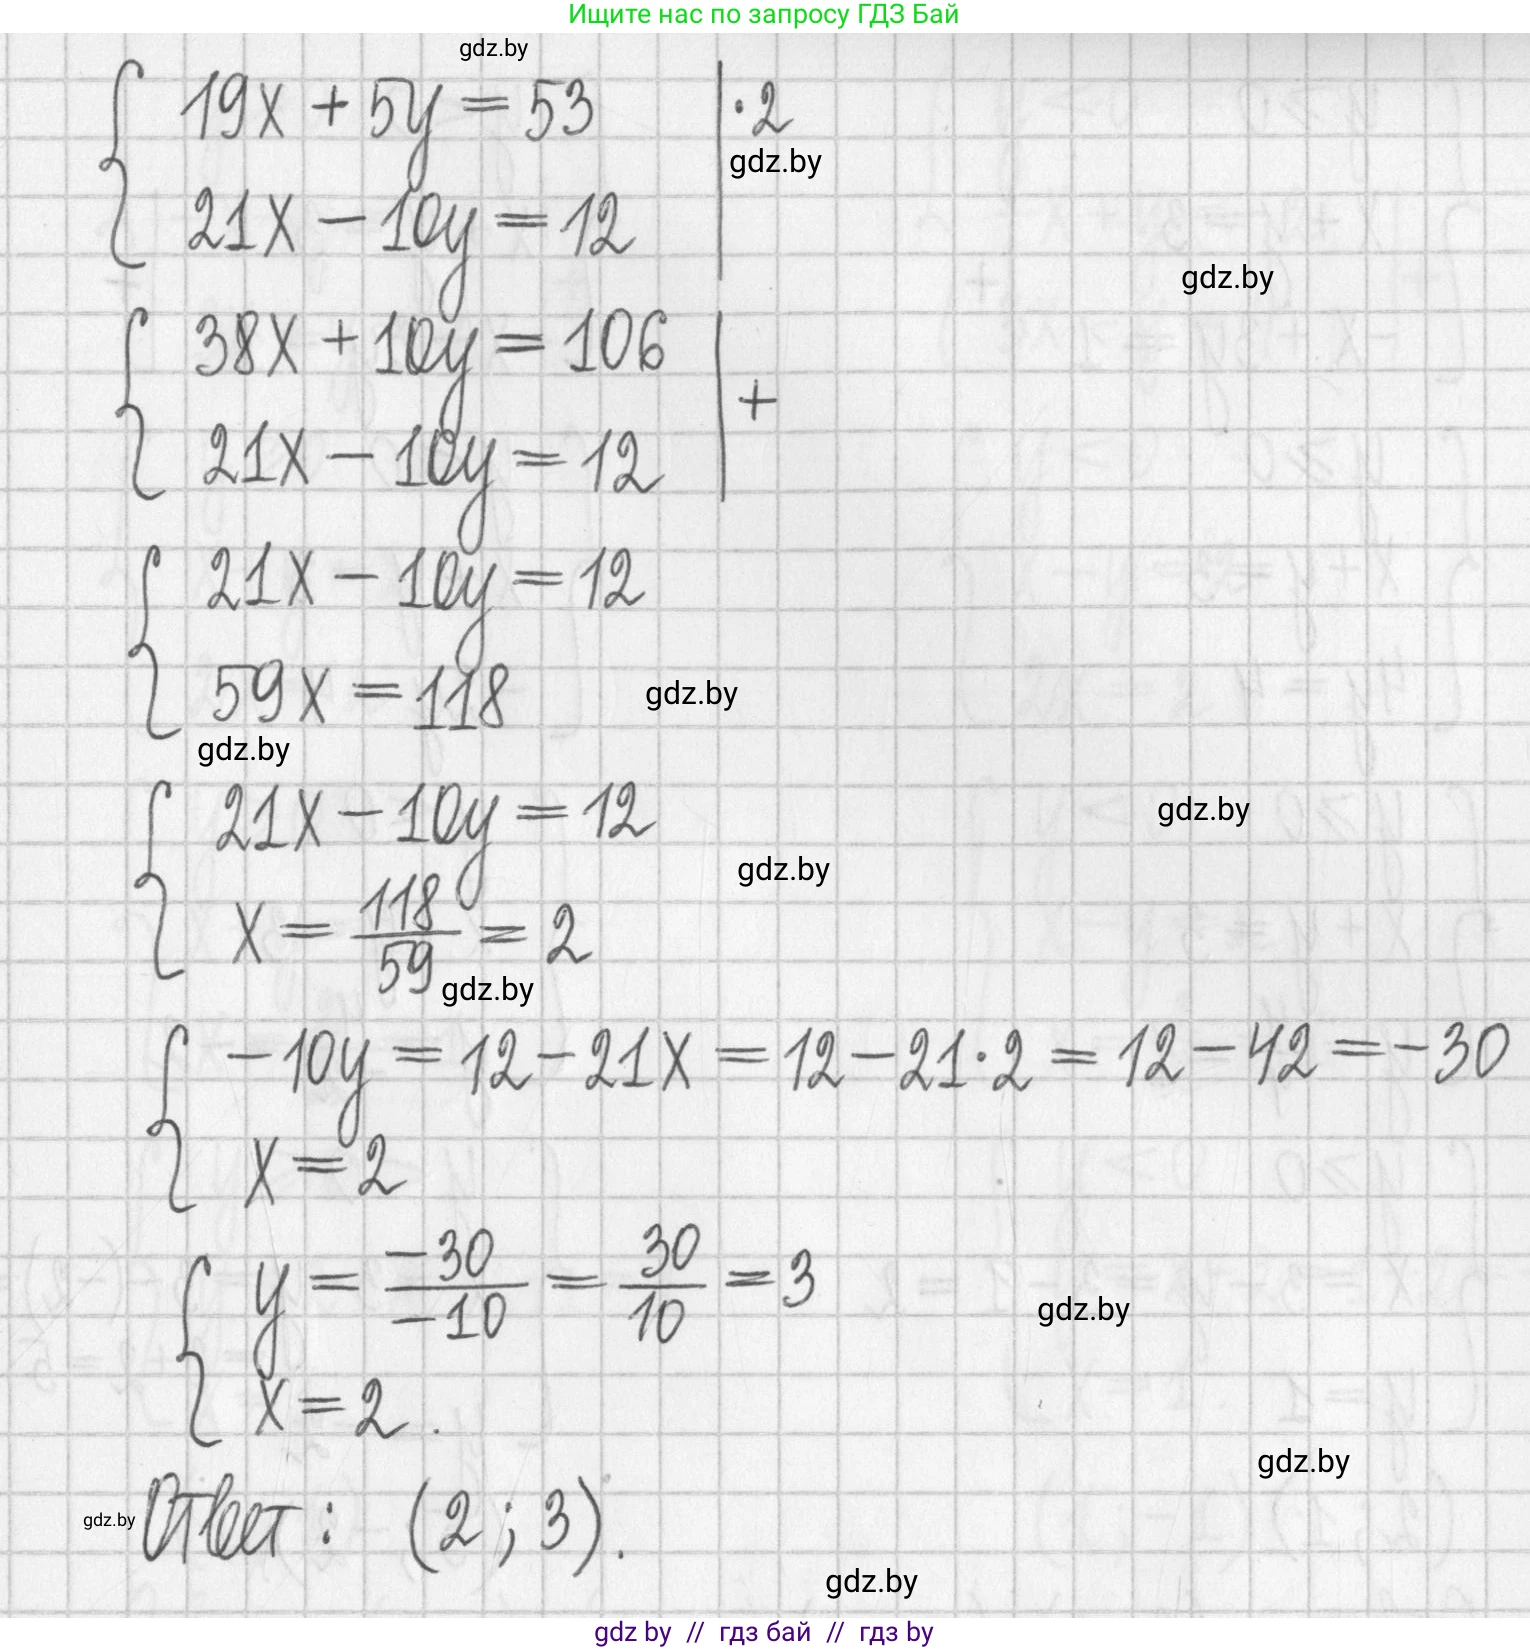 Ищите нас по запросу ГДЗ Бай
gdz.by
19x + 5y = 53 | ·2
gdz.by
21x − 10y = 12
gdz.by
38x + 10y = 106
+
21x − 10y = 12
21x − 10y = 12
59x = 118
gdz.by
gdz.by
21x − 10y = 12
gdz.by
gdz.by
x = 118/59 = 2
gdz.by
−10y = 12 − 21x = 12 − 21·2 = 12 − 42 = −30
x = 2
y = −30/−10 = 30/10 = 3
gdz.by
x = 2.
gdz.by
gdz.by
Ответ: (2; 3).
gdz.by
gdz by // гдз бай // гдз by